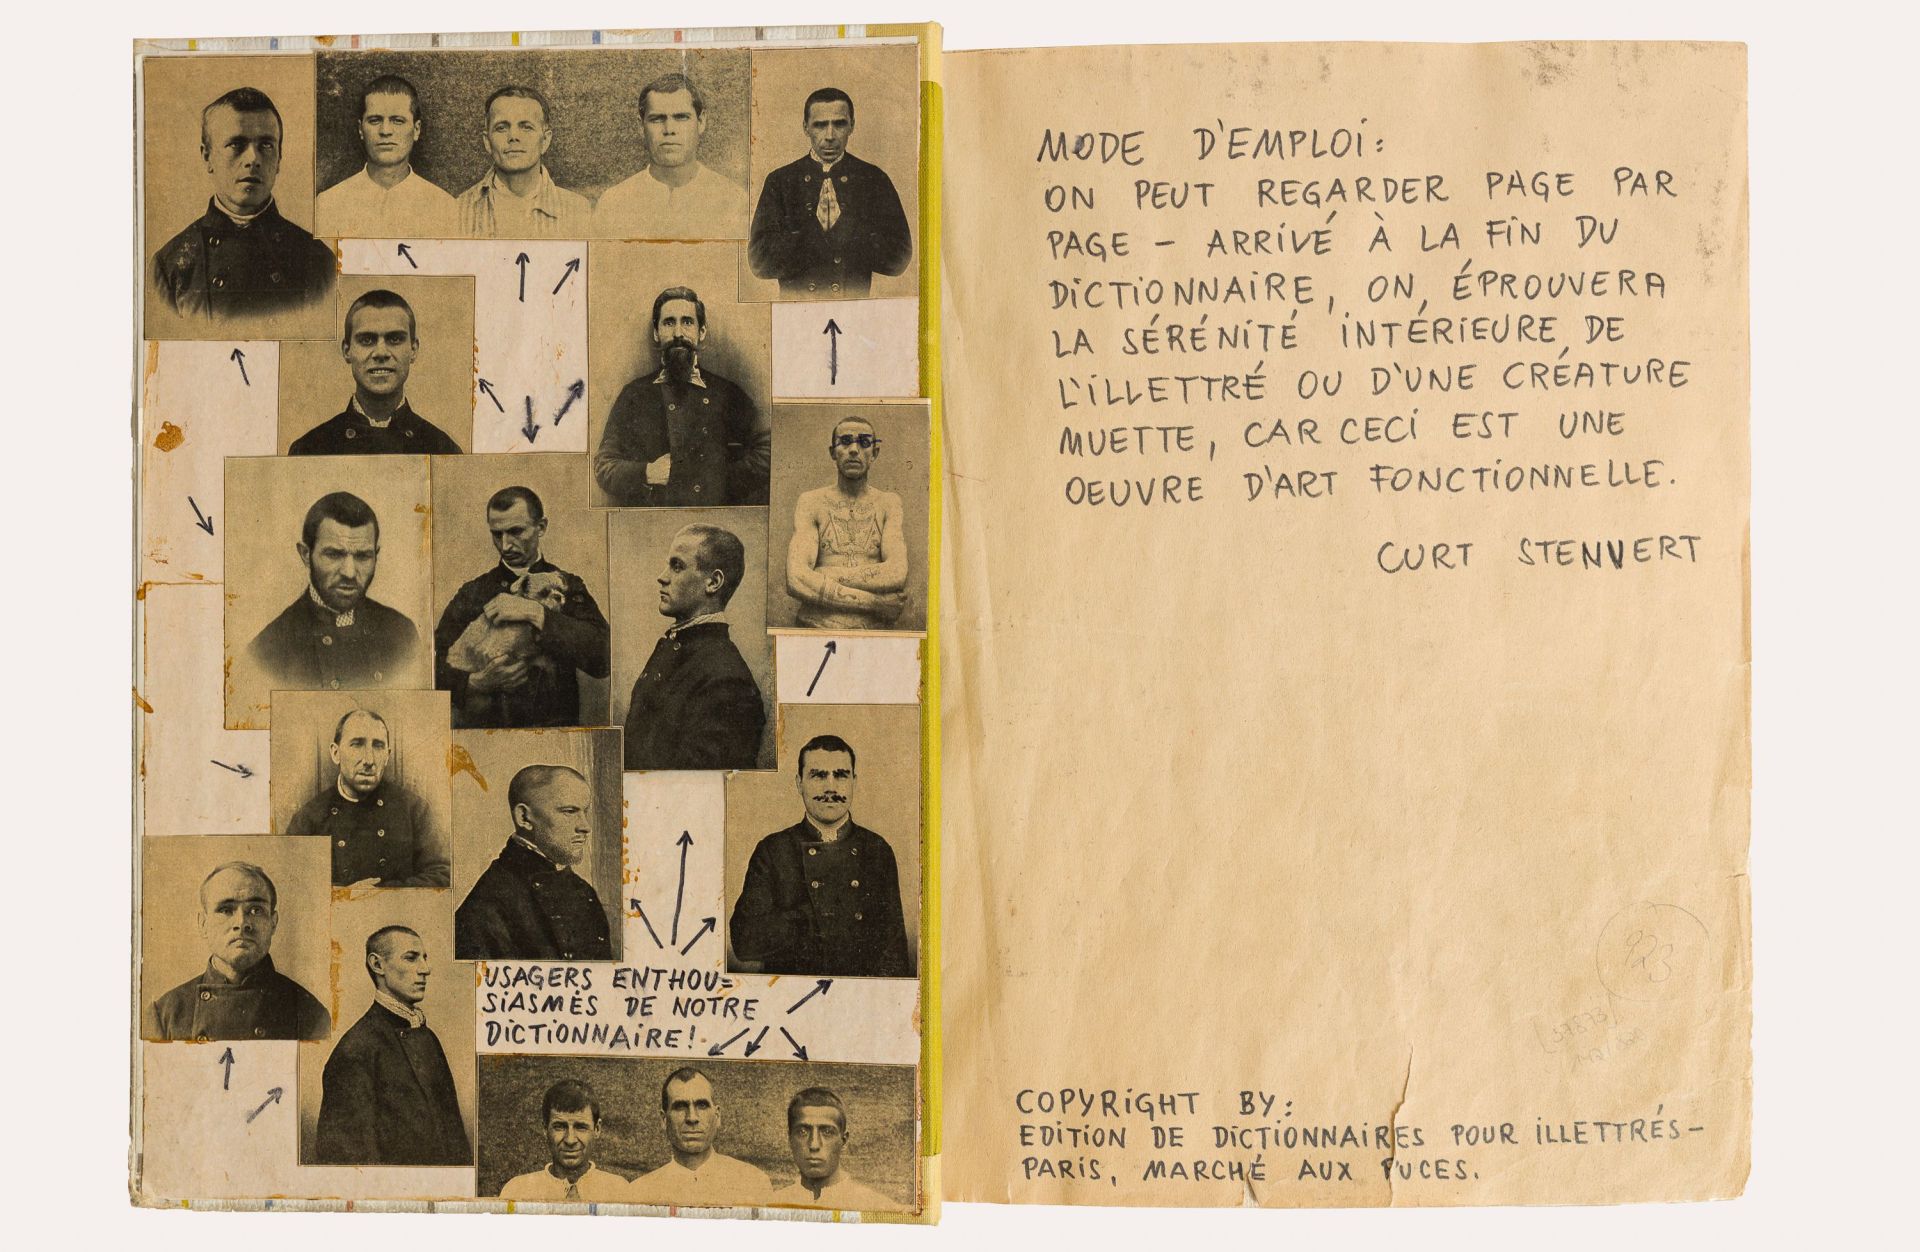 USAGERS ENTHOU=
SIASMÉS DE NOTRE
DICTIONNAIRE!
MODE D'EMPLOI:
ON PEUT REGARDER PAGE PAR
PAGE – ARRIVÉ À LA FIN DU
DICTIONNAIRE, ON, ÉPROUVERA
LA SÉRÉNITÉ INTÉRIEURE DE
L'ILLETTRÉ OU D'UNE CRÉATURE
MUETTE, CAR CECI EST UNE
OEUVRE D'ART FONCTIONNELLE.
CURT STENVERT
923
COPYRIGHT BY:
EDITION DE DICTIONNAIRES POUR ILLETTRÉS–
PARIS, MARCHÉ AUX PUCES.